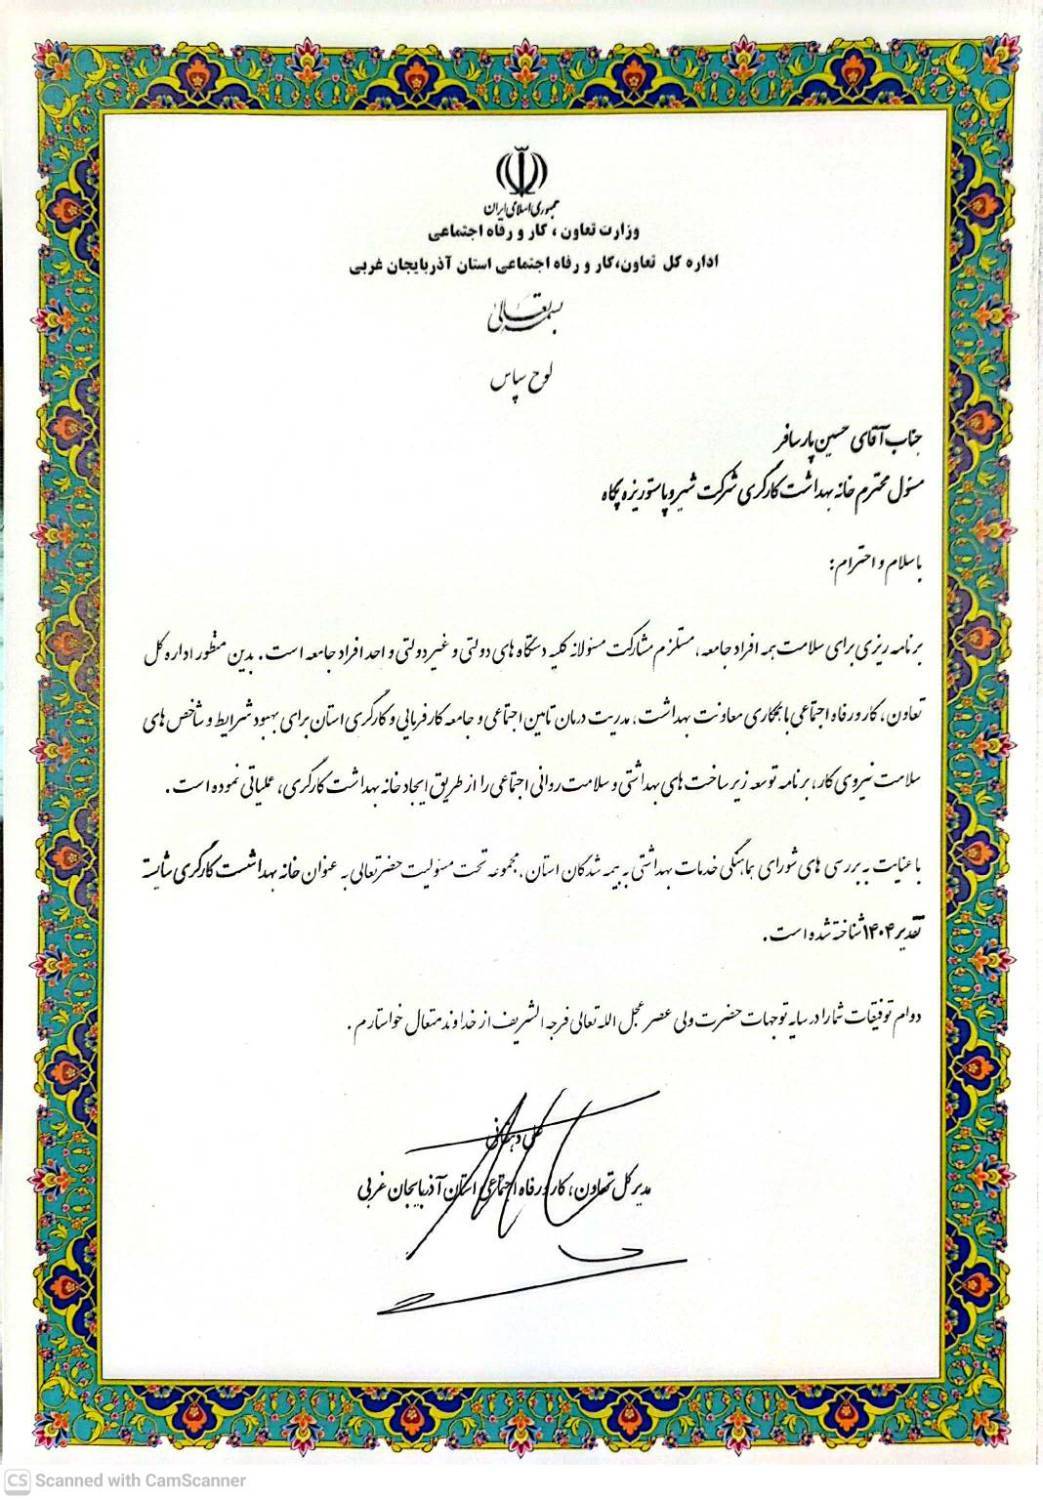 جمهوری اسلامی ایران
وزارت تعاون ، کار و رفاه اجتماعی
اداره کل تعاون،کار و رفاه اجتماعی استان آذربایجان غربی
بسمه تعالی
لوح سپاس
جناب آقای حسین پارسافر
مسئول محترم خانه بهداشت کارگری شرکت شیر و پاستوریزه پگاه
با سلام و احترام:
برنامه ریزی برای سلامت همه افراد جامعه، مستلزم مشارکت مسئولانه کلیه دستگاه های دولتی و غیر دولتی و احد افراد جامعه است. بدین منظور اداره کل
تعاون، کار و رفاه اجتماعی با همکاری معاونت بهداشت، مدیریت درمان تامین اجتماعی و جامعه کارفرمایی و کارگری استان برای بهبود شرایط و شاخص های
سلامت نیروی کار، برنامه توسعه زیر ساخت های بهداشتی و سلامت روانی اجتماعی را از طریق ایجاد خانه بهداشت کارگری، عملیاتی نموده است.
با عنایت به بررسی های شورای هماهنگی خدمات بهداشتی به بیمه شدگان استان، مجموعه تحت مسئولیت حضرتعالی به عنوان خانه بهداشت کارگری شایسته
تقدیر ۱۴۰۴ شناخته شده است.
دوام توفیقات شما را در سایه توجهات حضرت ولی عصر عجل الله تعالی فرجه الشریف از خداوند متعال خواستارم.
مدیرکل تعاون، کار و رفاه اجتماعی استان آذربایجان غربی
CS Scanned with CamScanner